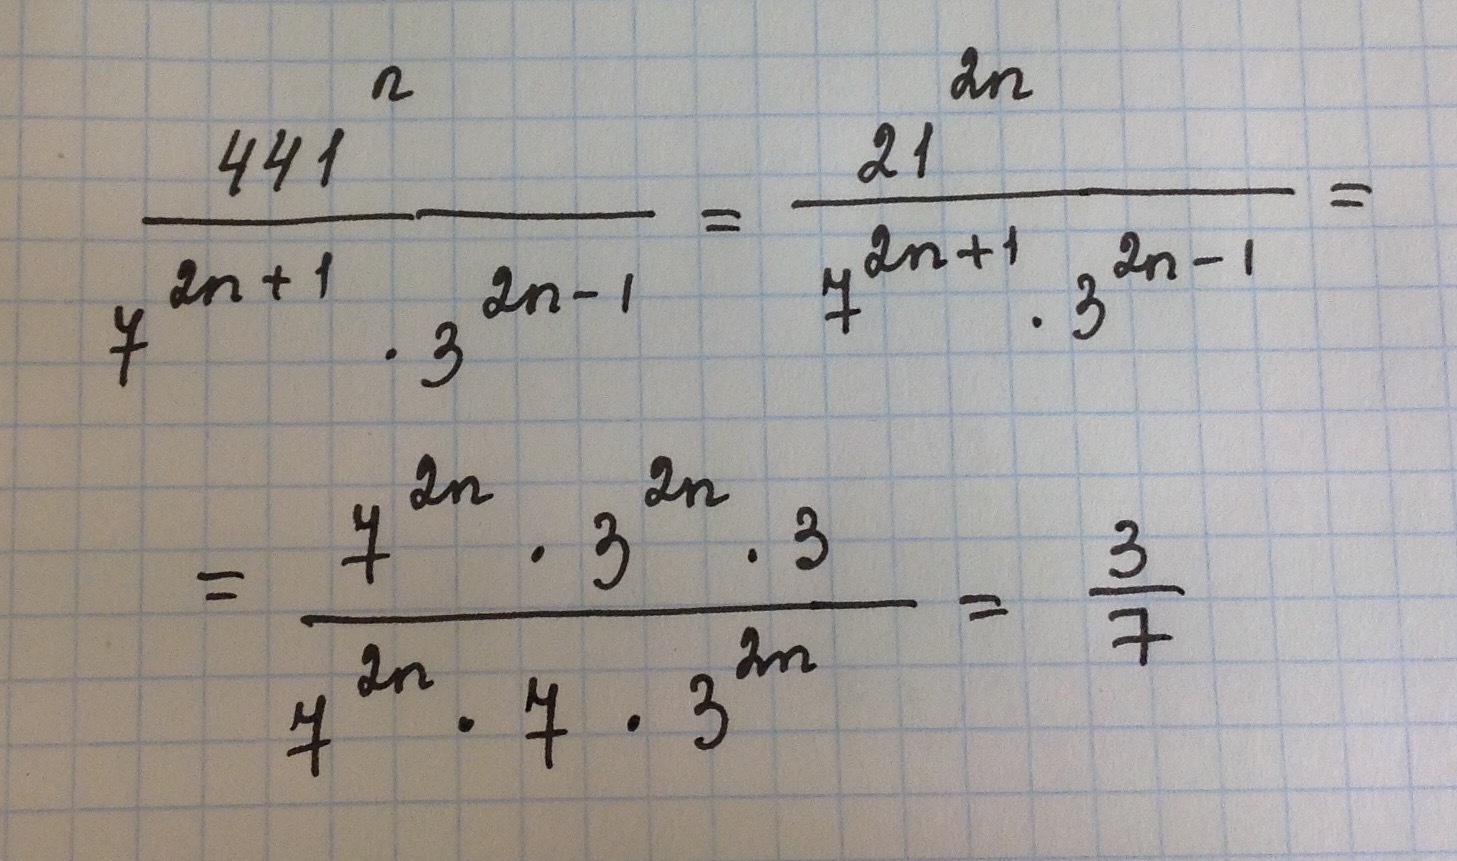 441^n / (7^(2n+1) · 3^(2n-1)) = 21^(2n) / (7^(2n+1) · 3^(2n-1)) =
= (7^(2n) · 3^(2n) · 3) / (7^(2n) · 7 · 3^(2n)) = 3/7